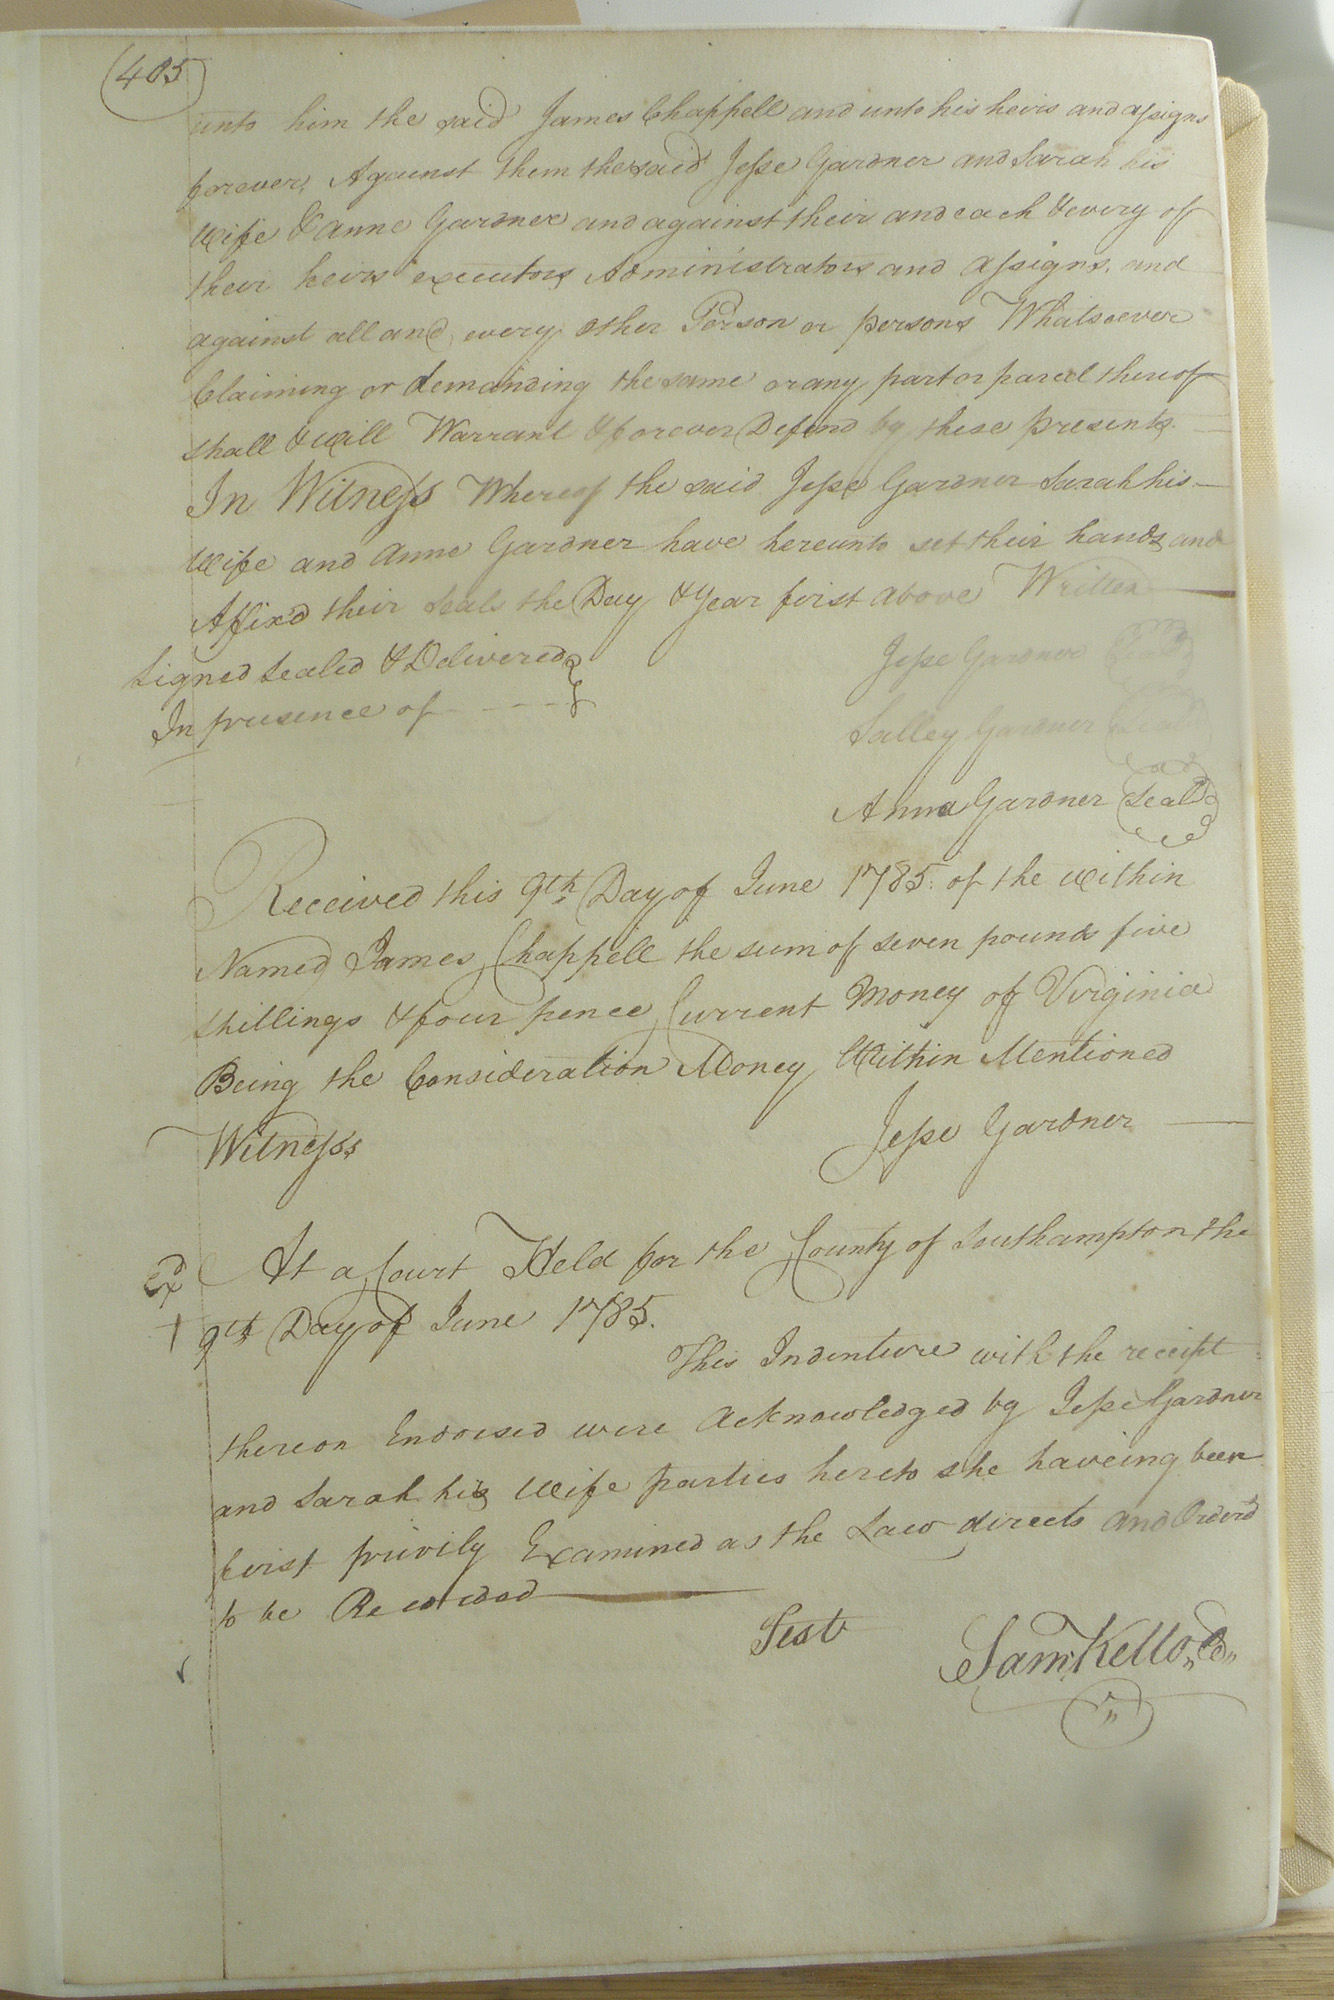 405
unto him the said James Chappell and unto his heirs and assigns
forever, Against them the said Jesse Gardner and Sarah his
Wife & Anne Gardner and against their and each & every of
their heirs executors Administrators and Assigns, and
against all and every other Person or persons Whatsoever
Claiming or demanding the same or any part or parcel thereof
shall & will Warrant & forever Defend by these presents.
In Witness Whereof the said Jesse Gardner Sarah his
Wife and Anne Gardner have hereunto set their hands and
Affixd their Seals the Day & Year first above Written
Signed Sealed & Delivered
In presence of
Jesse Gardner Seal
Salley Gardner Seal
Anna Gardner Seal
Received this 9th Day of June 1785. of the within
Named James Chappell the sum of seven pounds five
shillings & four pence Current Money of Virginia
Being the Consideration Money Within Mentioned
Witness
Jesse Gardner
At a Court Held for the County of Southampton the
9th Day of June 1785.
This Indenture with the receipt
thereon Endorsed were Acknowledged by Jesse Gardner
and Sarah his Wife parties hereto she haveing been
first privily Examined as the Law directs and Orderd
to be Recorded
Test
Sam Kello